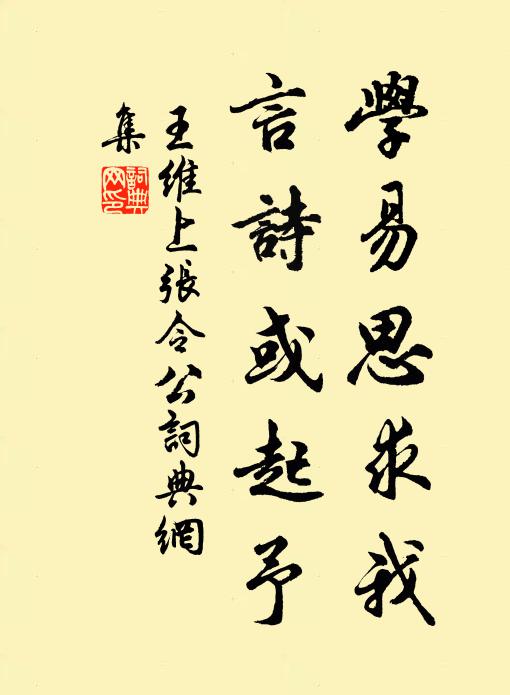 學易思求我
言詩或起予
王維上張令公詞典網
集
詞典
网印